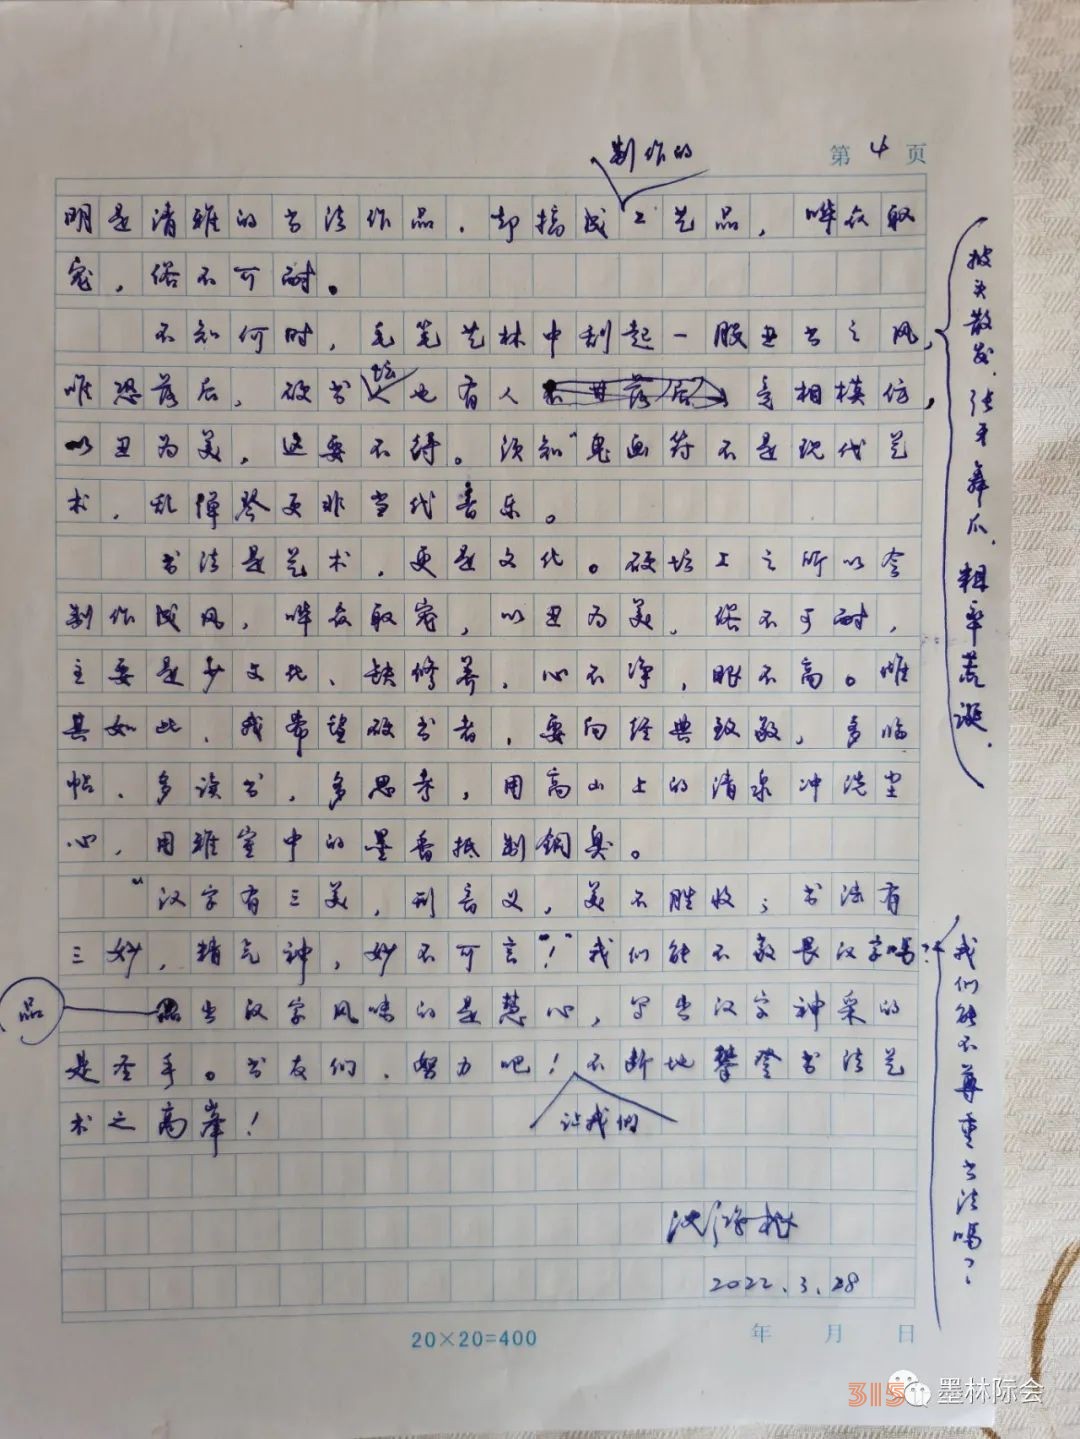 第 4 页
制作的
明是清雅的书法作品，却搞成工艺品，哗众取
宠，俗不可耐。
不知何时，毛笔艺林中刮起一股丑书之风，
披头散发、张牙舞爪、粗率荒诞，
唯恐落后，硬书坛也有人竞相模仿，
以丑为美，这要不得。须知"鬼画符不是现代艺
术，乱弹琴更非当代音乐。
书法是艺术，更是文化。硬坛上之所以会
制作成风，哗众取宠，以丑为美，俗不可耐，
主要是少文化、缺修养，心不净，眼不高。惟
其如此，我希望硬书者，要向经典致敬，多临
帖、多读书，多思考，用高山上的清泉冲洗尘
心，用雅室中的墨香抵制铜臭。
"汉字有三美，形音义，美不胜收；书法有
三妙，精气神，妙不可言"！我们能不敬畏汉字吗？
我们能不尊重书法吗？
品出汉字风味的是慧心，写出汉字神采的
是圣手。书友们，努力吧！不断地攀登书法艺
让我们
术之高峰！
沈鸿根
2022.3.28
20×20=400
年 月 日
315
墨林际会